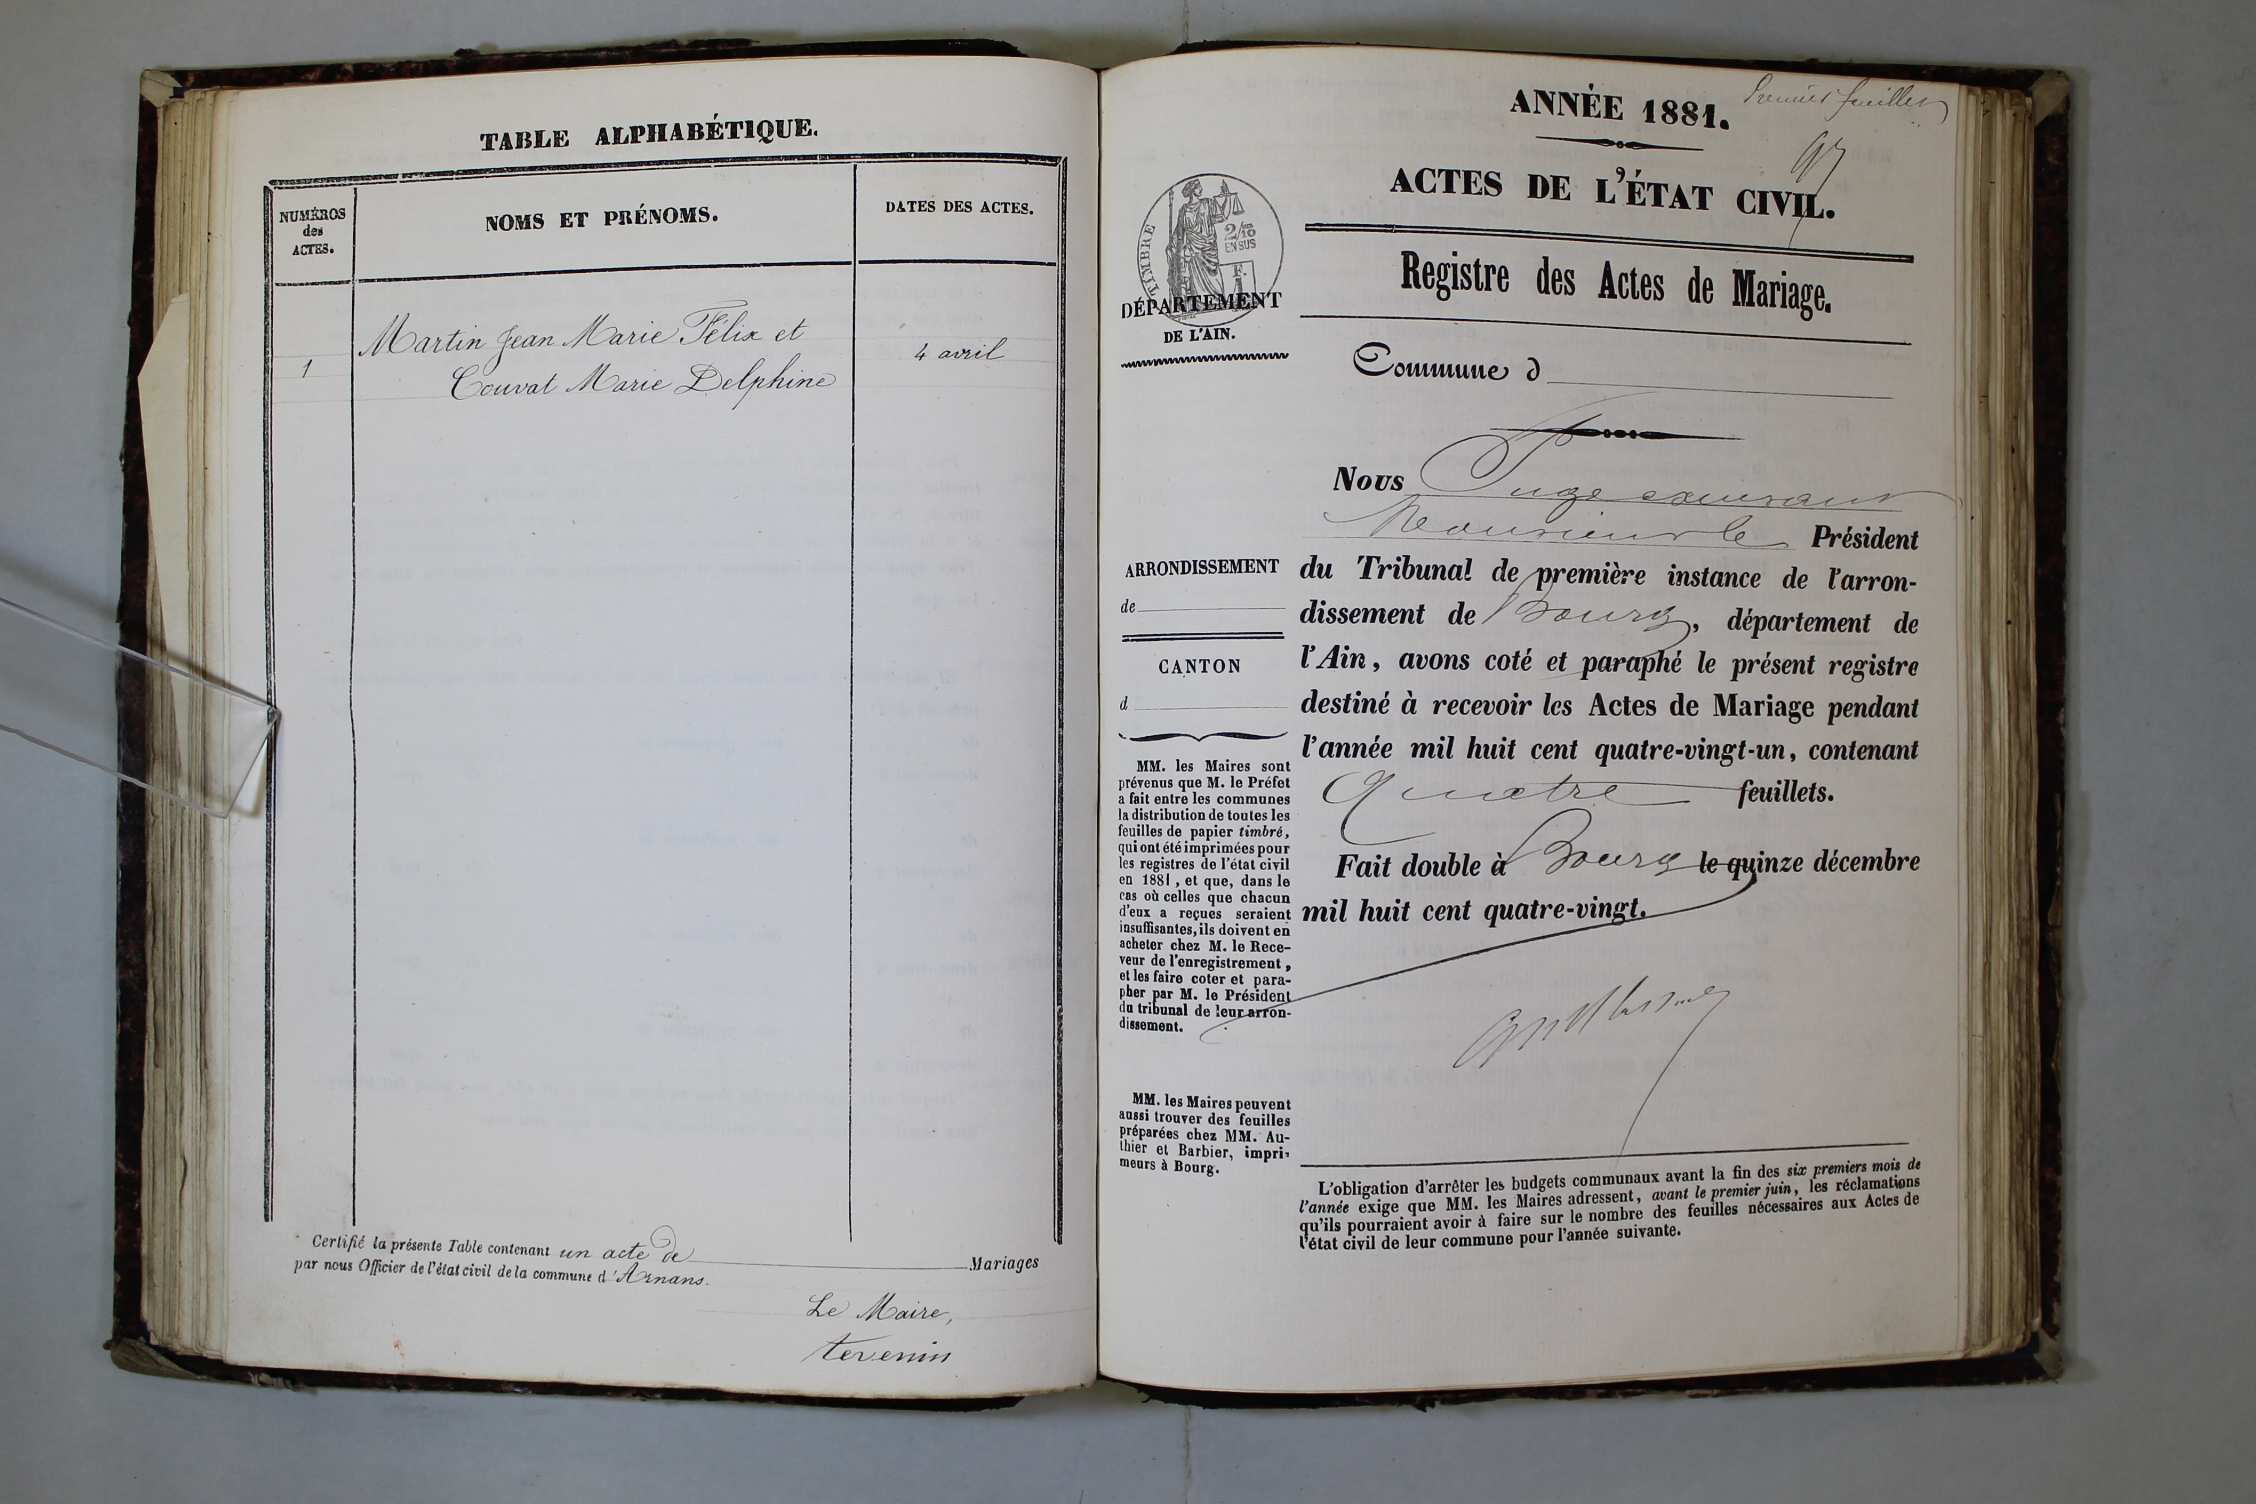 TABLE ALPHABÉTIQUE.
NUMÉROS
des
ACTES.
NOMS ET PRÉNOMS.
DATES DES ACTES.
Martin Jean Marie Félix et
1
4 avril
Couvat Marie Delphine
Certifié la présente Table contenant un acte de Mariages
par nous Officier de l'état civil de la commune d'Arnans.
Le Maire,
tevenin
Premier feuillet
ANNÉE 1881.
ACTES DE L'ÉTAT CIVIL.
Registre des Actes de Mariage.
TIMBRE
2/10
EN SUS
F.
1
DÉPARTEMENT
DE L'AIN.
Commune d
Nous Juge
Monsieur le Président
du Tribunal de première instance de l'arron-
dissement de Bourg, département de
l'Ain, avons coté et paraphé le présent registre
destiné à recevoir les Actes de Mariage pendant
l'année mil huit cent quatre-vingt-un, contenant
Quatre feuillets.
Fait double à Bourg le quinze décembre
mil huit cent quatre-vingt.
ARRONDISSEMENT
de
CANTON
d
MM. les Maires sont
prévenus que M. le Préfet
a fait entre les communes
la distribution de toutes les
feuilles de papier timbré,
qui ont été imprimées pour
les registres de l'état civil
en 1881, et que, dans le
cas où celles que chacun
d'eux a reçues seraient
insuffisantes, ils doivent en
acheter chez M. le Rece-
veur de l'enregistrement,
et les faire coter et para-
pher par M. le Président
du tribunal de leur arron-
dissement.
MM. les Maires peuvent
aussi trouver des feuilles
préparées chez MM. Au-
thier et Barbier, impri-
meurs à Bourg.
L'obligation d'arrêter les budgets communaux avant la fin des six premiers mois de
l'année exige que MM. les Maires adressent, avant le premier juin, les réclamations
qu'ils pourraient avoir à faire sur le nombre des feuilles nécessaires aux Actes de
l'état civil de leur commune pour l'année suivante.